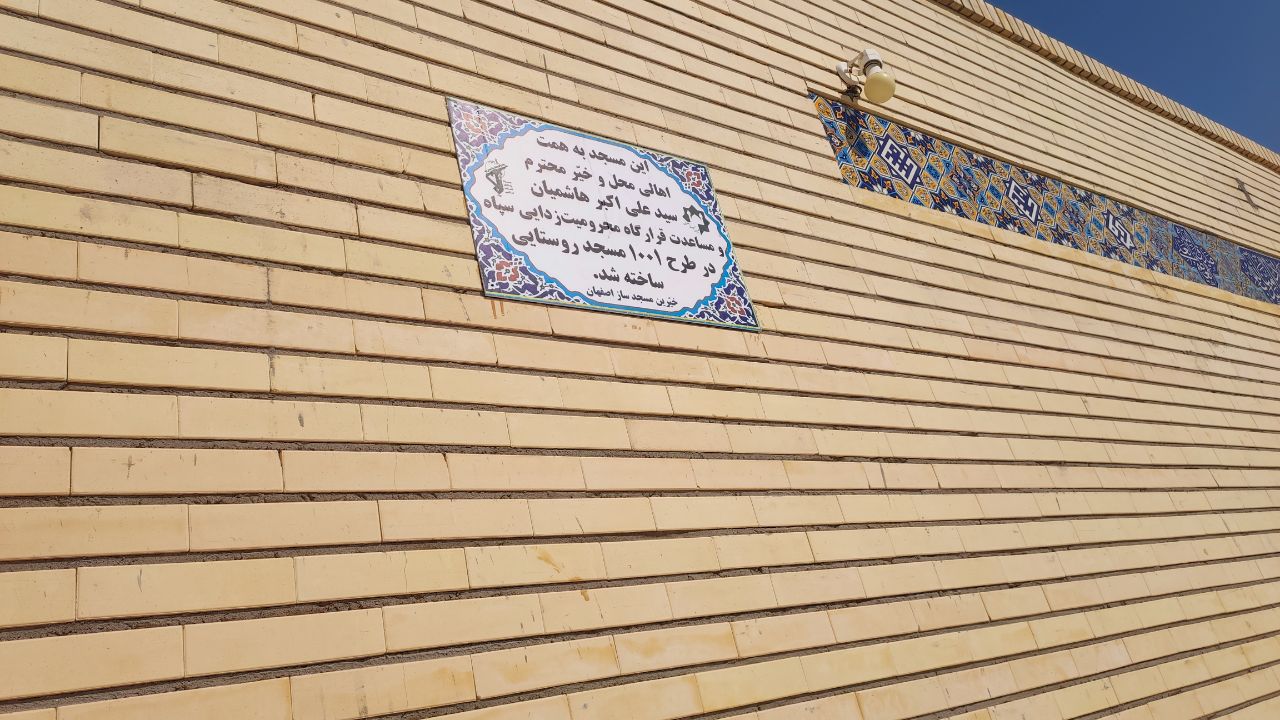 این مسجد به همت
اهالی محل و خیّر محترم
سید علی اکبر هاشمیان
و مساعدت قرارگاه محرومیت‌زدایی سپاه
در طرح ۱۰۰۱ مسجد روستایی
ساخته شد.
خیّرین مسجد ساز اصفهان